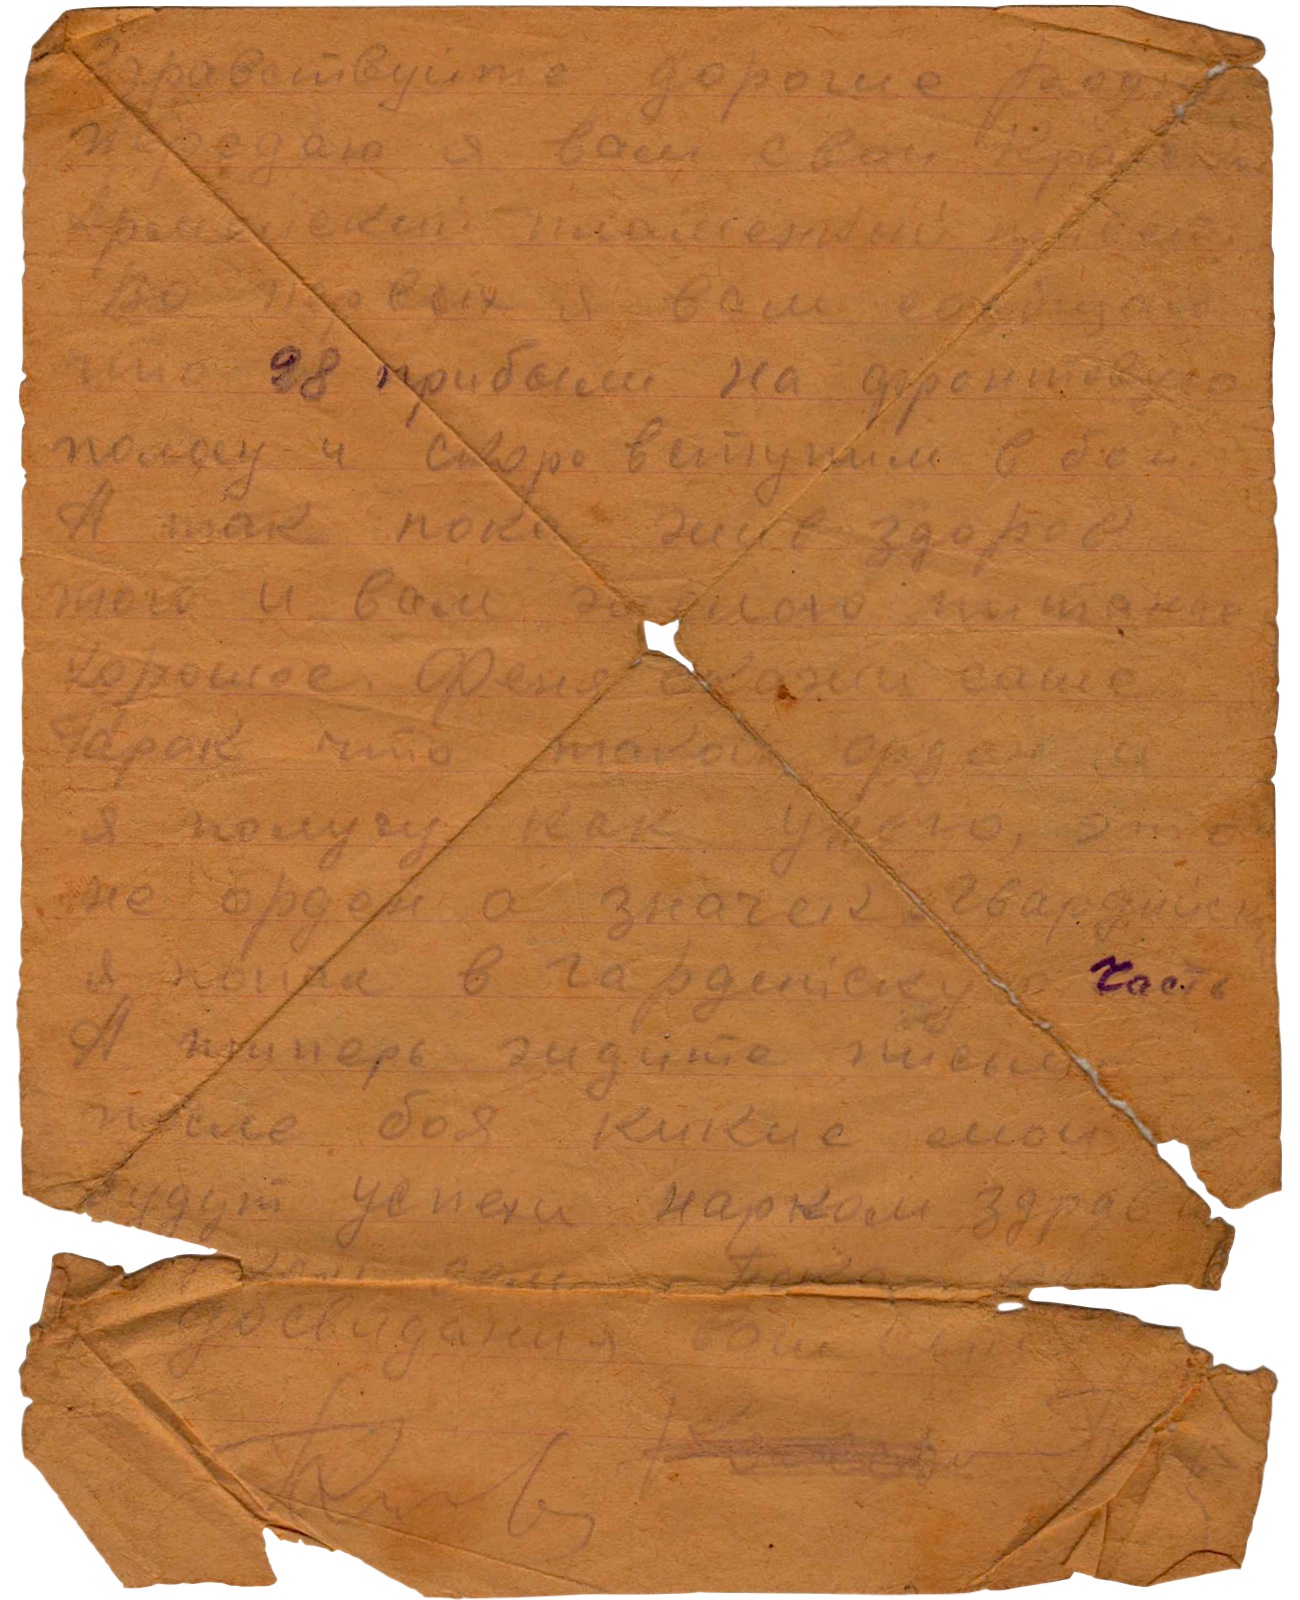 Здравствуйте дорогие
передаю я вам свой
Армейский пламенный привет.
Во первых я вам сообщаю
что 28 прибыли на фронтовую
полосу и скоро вступим в бой.
А так пока жив здоров
того и вам желаю питание
хорошое. Феня скажи саше
что такой орден и
я получу как унего, это
не орден а значек Гвардейски
я попал в гардейскую часть
А типерь ждите письма
после боя кикие мои
будут успехи нарком здрав
Пока
досвидания ваш сын